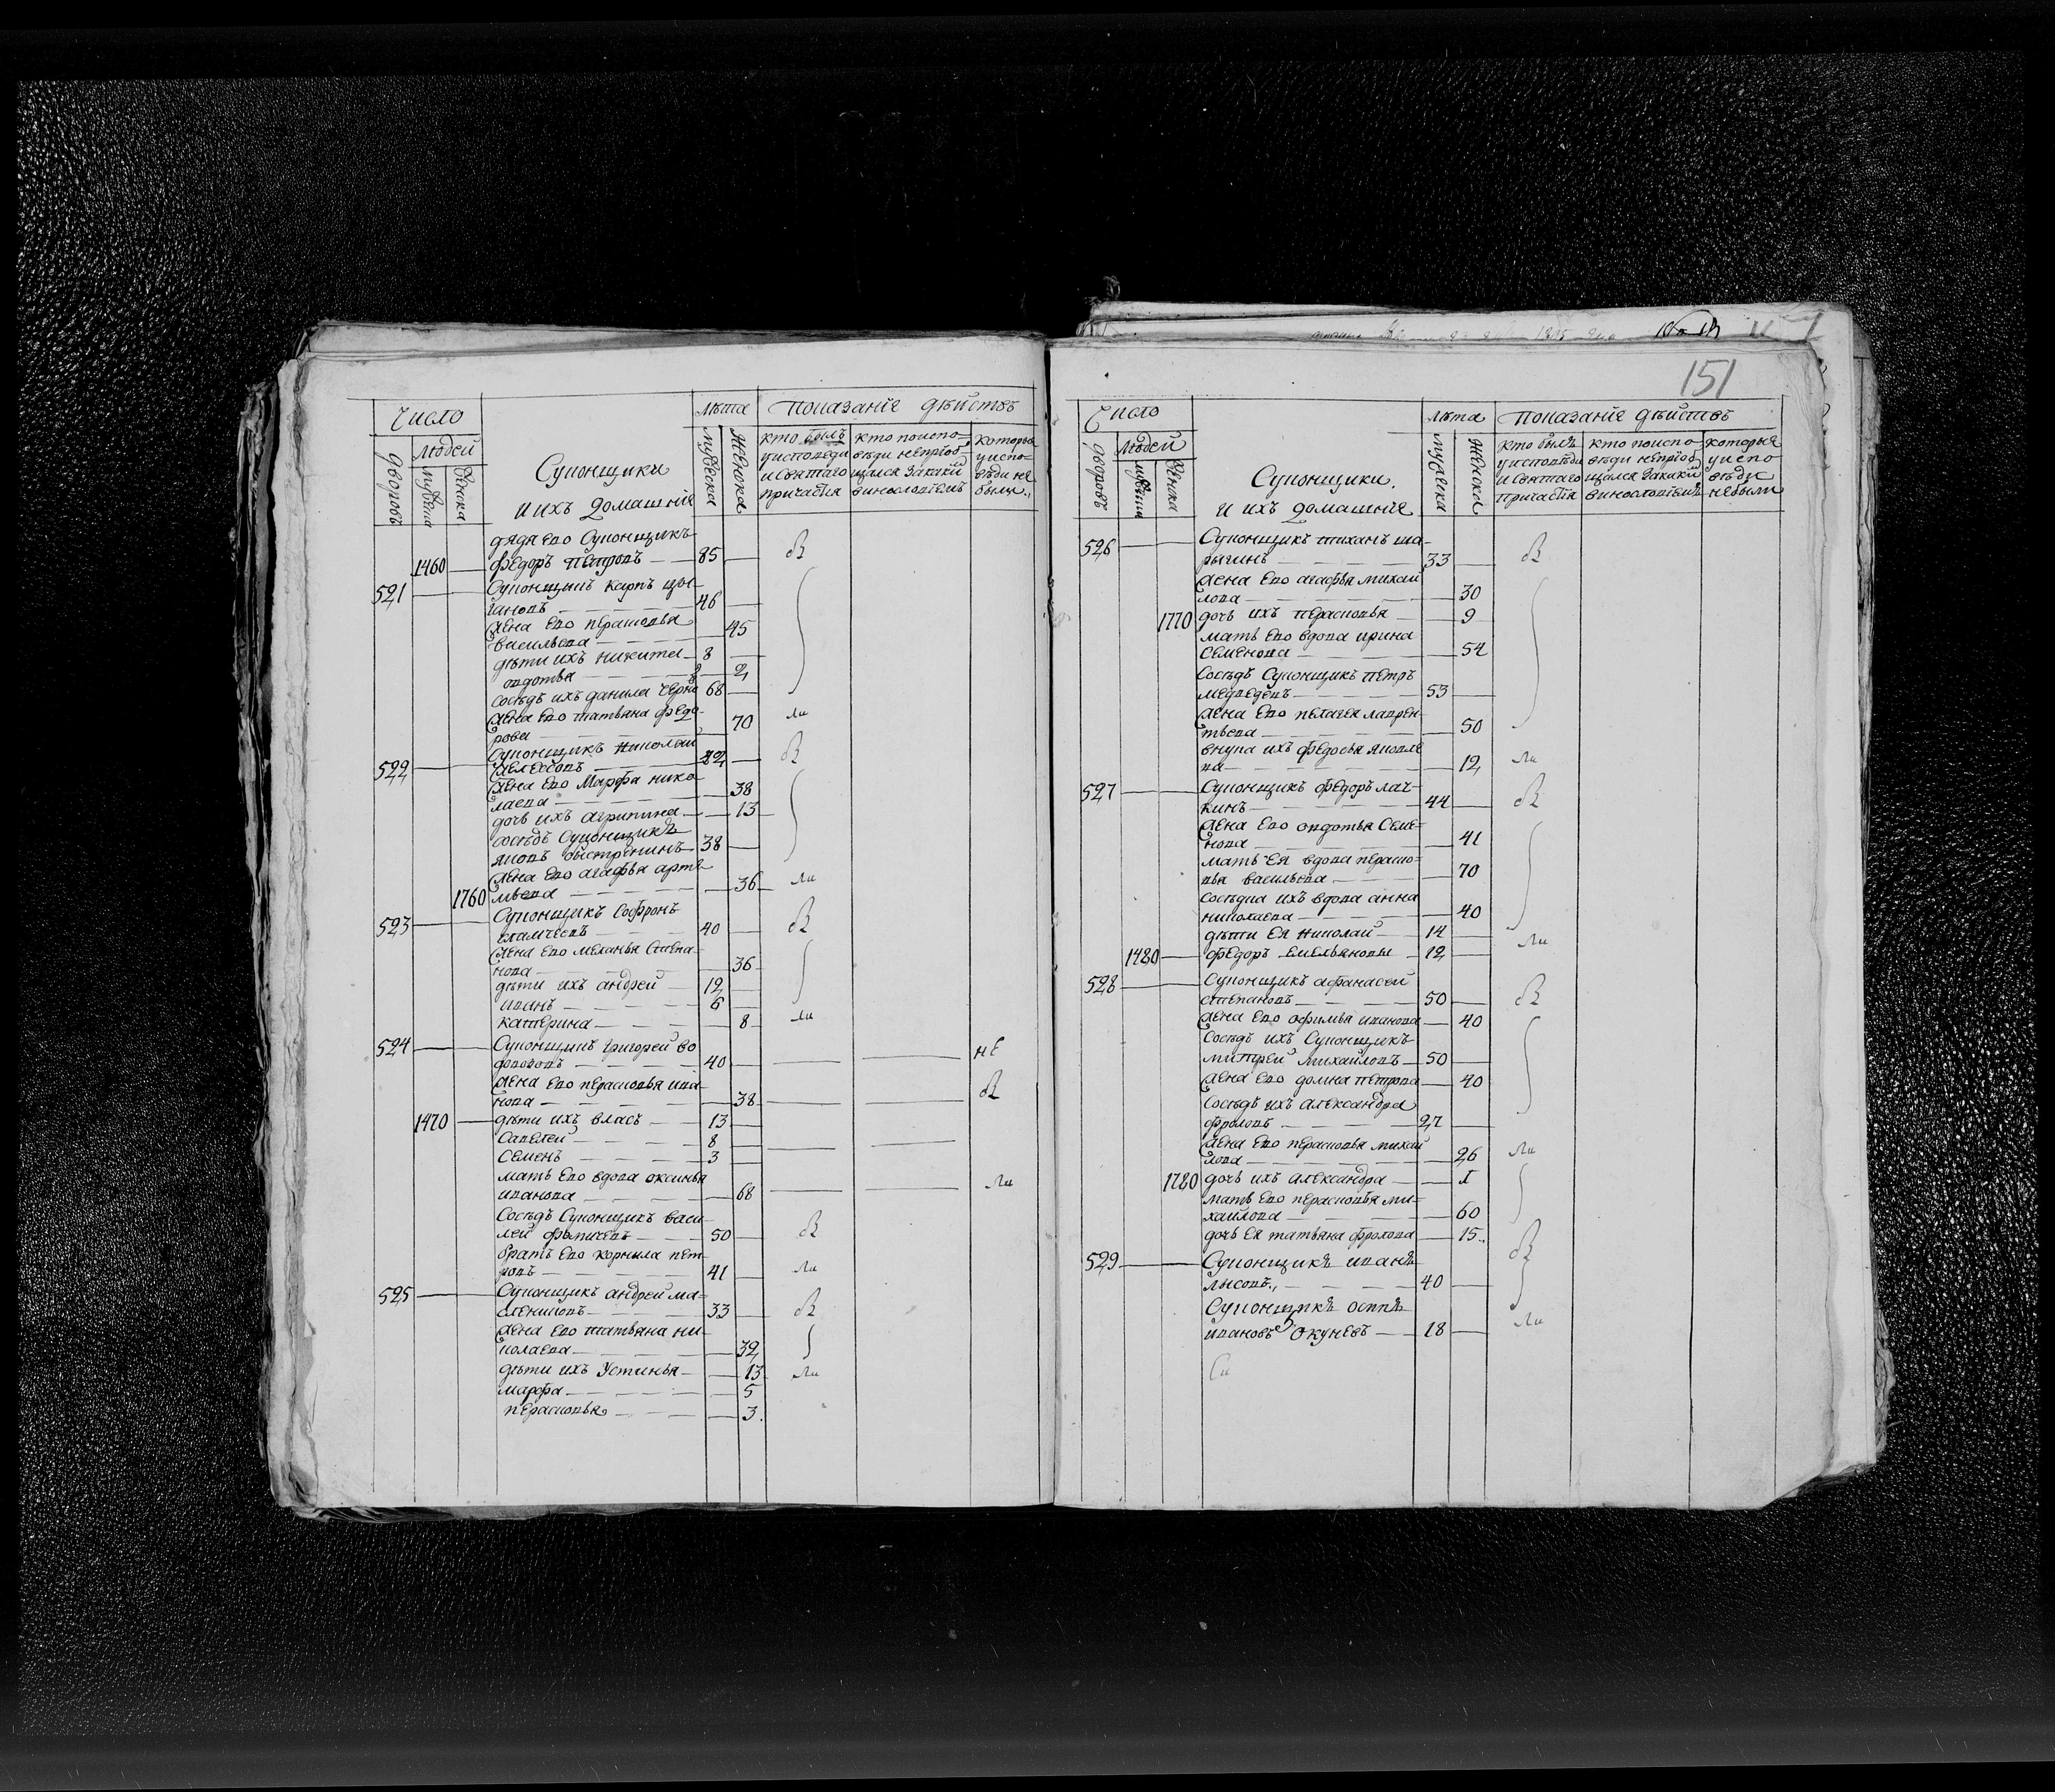 Число
людей
дворовъ
мужска
женска
Суконщики
и ихъ домашнiе
лѣта
мужеска
женска
показанiе дѣйствъ
кто былъ
у исповеди
и святаго
причастiя
кто по испо-
вѣди не прiоб
щился за каки
виносло
которыя
у испо-
вѣди не
были
дядя ево Суконщикъ
1460 федоръ петровъ 85
521 Суконщикъ карпъ цы-
гановъ 46
жена ево перасковья
васильева 45
дѣти их никита 8
овдотья 2
сосѣдъ ихъ данила черно 68
жена ево татьяна федо-
рова 70
522 Суконщикъ николай
42
жена ево Марфа нико-
лаева 38
дочь ихъ агрипина 13
сосѣдъ Суконщикъ
яковъ быстренинъ 38
жена ево агафья арте-
1760 мьева 36
523 Суконщикъ Софронъ
40
жена ево меланья степа-
нова 36
дѣти ихъ андрей 12
иванъ 6
катерина 8
524 Суконщикъ григорей во
довозовъ 40 не
жена ево перасковья ива-
нова 38
1470 дѣти ихъ власъ 13
Савелей 8
Семенъ 3
мать ево вдова оксинья
иванова 68
Сосѣдъ Суконщикъ васи-
лей 50
братъ ево корнила пет-
ровъ 41
525 Суконщикъ андрей ма-
слениковъ 33
жена ево татьяна ни-
колаева 32
дѣти ихъ Устинья 13
марфа 5
перасковья 3
151
Число
дворовъ
людей
мужска
женска
Суконщики
и ихъ домашнiе
лѣта
мужеска
женска
показанiе дѣйствъ
кто былъ
у исповѣди
и святаго
причастiя
кто по испо-
вѣди не прiоб
щался за каки
которыя
у испо
вѣди
не были
526 Суконщикъ тиханъ ша-
рыгинъ 33
жена ево агафья михаи
лова 30
1770 дочь ихъ перасковья 9
мать ево вдова ирина
семенова 54
Сосѣдъ Суконщикъ петръ
медведевъ 53
жена ево пелагея лаврен-
тьева 50
внука ихъ федосья яковле
ва 12
527 Суконщикъ федоръ лач-
кинъ 44
жена ево овдотья Семе-
нова 41
мать ея вдова перако-
вья васильева 70
сосѣдка ихъ вдова анна
николаева 40
дѣти ея николай 14
1480 федоръ емельяновы 12
528 Суконщикъ афанасей
степановъ 50
жена ево офимья иванова 40
Сосѣдъ ихъ Суконщикъ
митрей михайловъ 50
жена ево домна петрова 40
Сосѣдъ ихъ александра
фроловъ 27
жена ево перасковья михаи
лова 26
1780 дочь ихъ александра 1
мать ево перасковья ми-
хаилова 60
дочь ея татьяна фролова 15
529 Суконщикъ иванъ
лысовъ 40
Суконщикъ осипъ
ивановъ Окуневъ 18